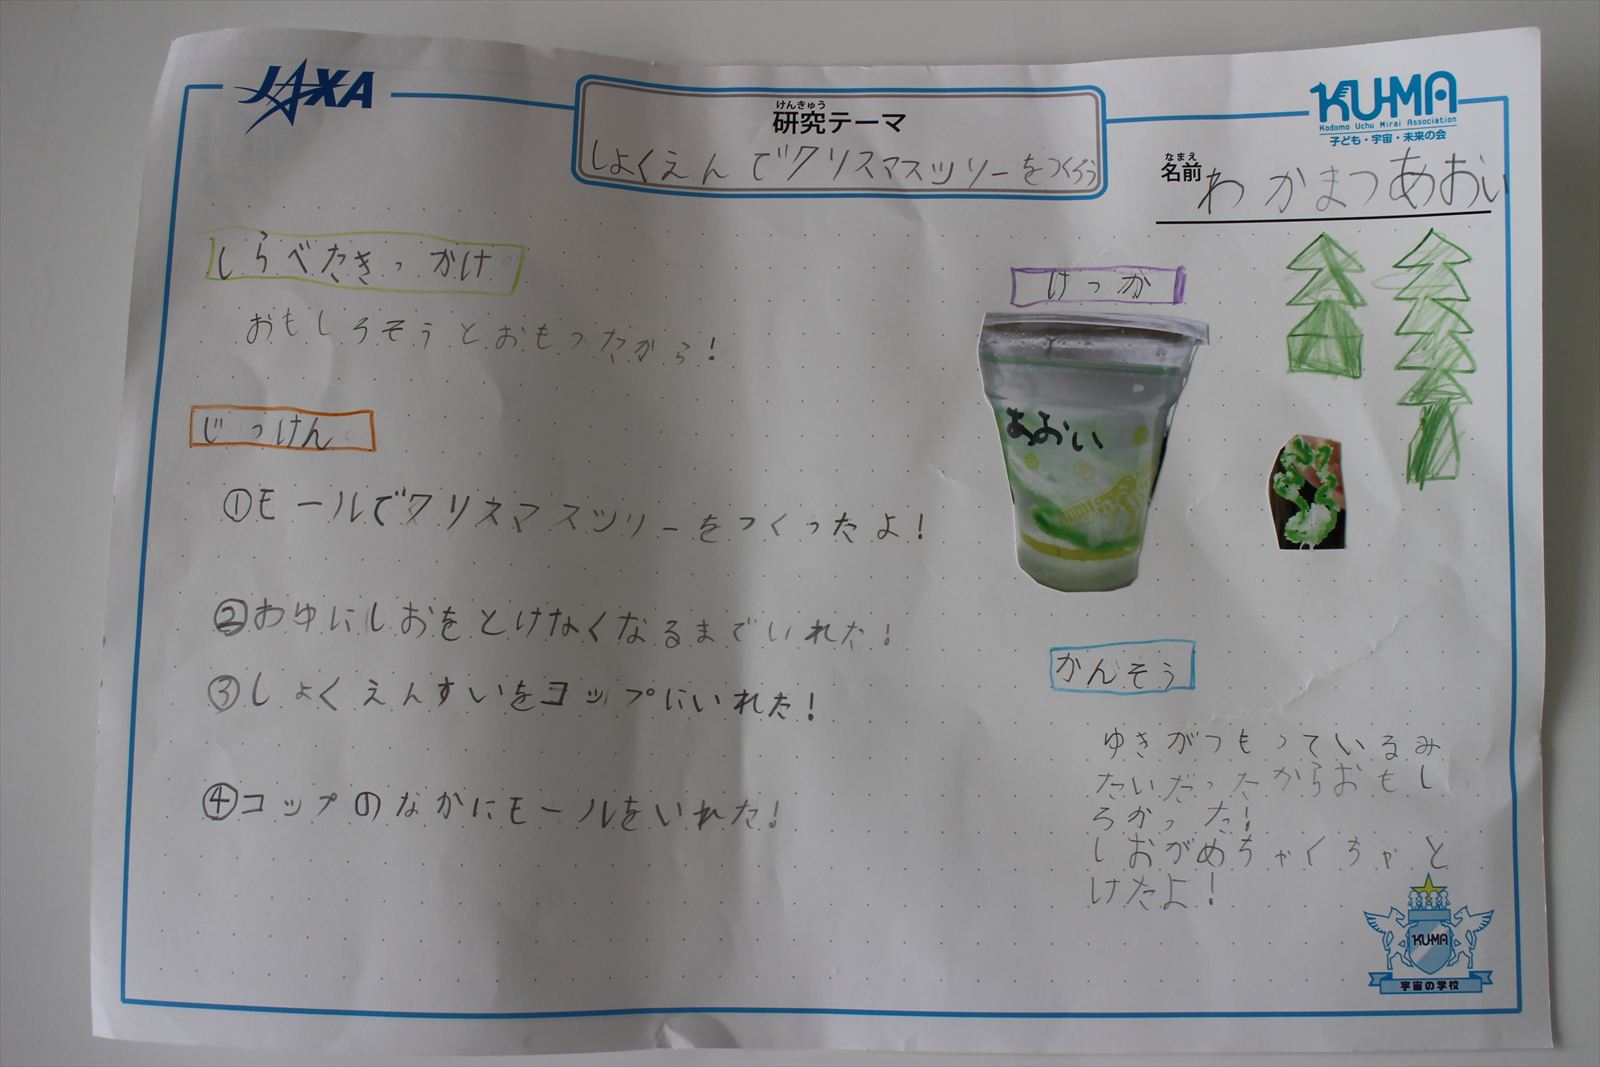 JAXA
けんきゅう
研究テーマ
しょくえんでクリスマスツリーをつくろう
KU-MA
Kodomo Uchu Mirai Association
子ども・宇宙・未来の会
なまえ
名前 わかまつあおい
しらべたきっかけ
おもしろそうとおもったから!
じっけん
①モールでクリスマスツリーをつくったよ!
②おゆにしおをとけなくなるまでいれた!
③しょくえんすいをコップにいれた!
④コップのなかにモールをいれた!
けっか
あおい
かんそう
ゆきがつもっているみ
たいだったからおもし
ろかった!
しおがめちゃくちゃと
けたよ!
KU-MA
宇宙の学校